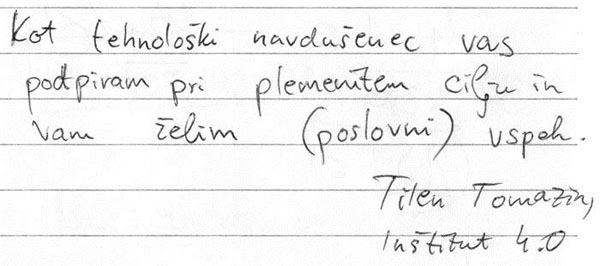 Kot tehnološki navdušenec vas
podpiram pri plemenitem cilju in
vam želim (poslovni) uspeh.
Tilen Tomazin,
Inštitut 4.0